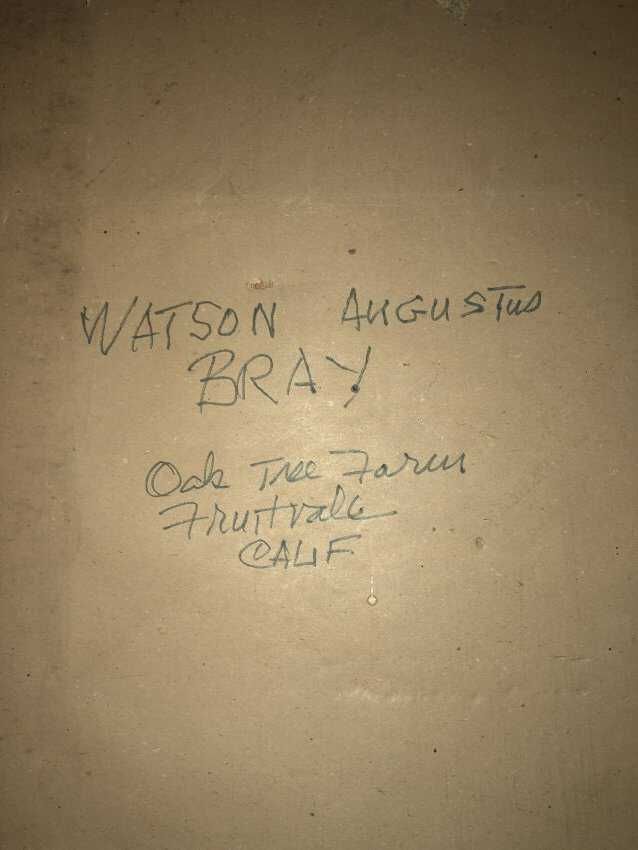 WATSON AUGUSTUS
BRAY
Oak Tree Farm
Fruitvale
CALIF